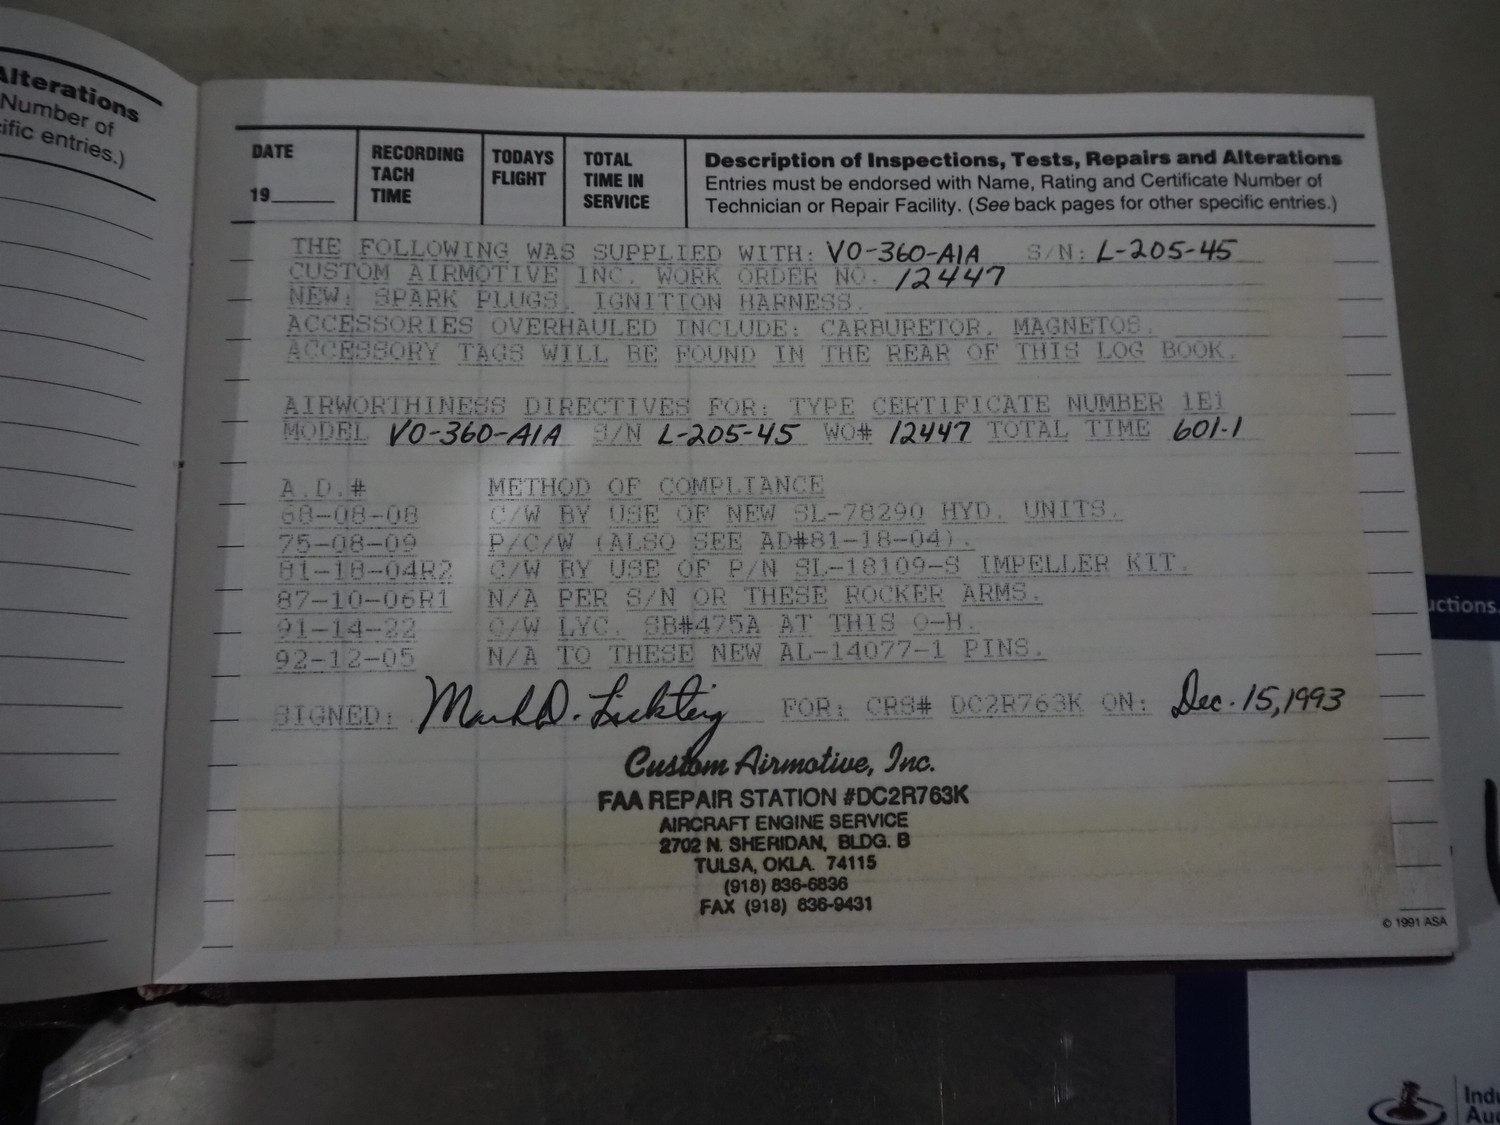 Alterations
Number of
ific entries.)
DATE
19____
RECORDING
TACH
TIME
TODAYS
FLIGHT
TOTAL
TIME IN
SERVICE
Description of Inspections, Tests, Repairs and Alterations
Entries must be endorsed with Name, Rating and Certificate Number of
Technician or Repair Facility. (See back pages for other specific entries.)
THE FOLLOWING WAS SUPPLIED WITH: VO-360-A1A S/N: L-205-45
CUSTOM AIRMOTIVE INC. WORK ORDER NO. 12447
NEW: SPARK PLUGS, IGNITION HARNESS.
ACCESSORIES OVERHAULED INCLUDE: CARBURETOR, MAGNETOS.
ACCESSORY TAGS WILL BE FOUND IN THE REAR OF THIS LOG BOOK.
AIRWORTHINESS DIRECTIVES FOR: TYPE CERTIFICATE NUMBER 1E1
MODEL VO-360-A1A S/N L-205-45 WO# 12447 TOTAL TIME 601.1
A.D.# METHOD OF COMPLIANCE
68-08-08 C/W BY USE OF NEW SL-78290 HYD. UNITS.
75-08-09 P/C/W (ALSO SEE AD#81-18-04).
81-18-04R2 C/W BY USE OF P/N SL-18109-S IMPELLER KIT.
87-10-06R1 N/A PER S/N OR THESE ROCKER ARMS.
91-14-22 C/W LYC. SB#475A AT THIS O-H.
92-12-05 N/A TO THESE NEW AL-14077-1 PINS.
SIGNED: Mark D. Lickteig FOR: CRS# DC2R763K ON: Dec. 15, 1993
Custom Airmotive, Inc.
FAA REPAIR STATION #DC2R763K
AIRCRAFT ENGINE SERVICE
2702 N. SHERIDAN, BLDG. B
TULSA, OKLA. 74115
(918) 836-6836
FAX (918) 836-9431
© 1991 ASA
uctions.
Indu
Auc